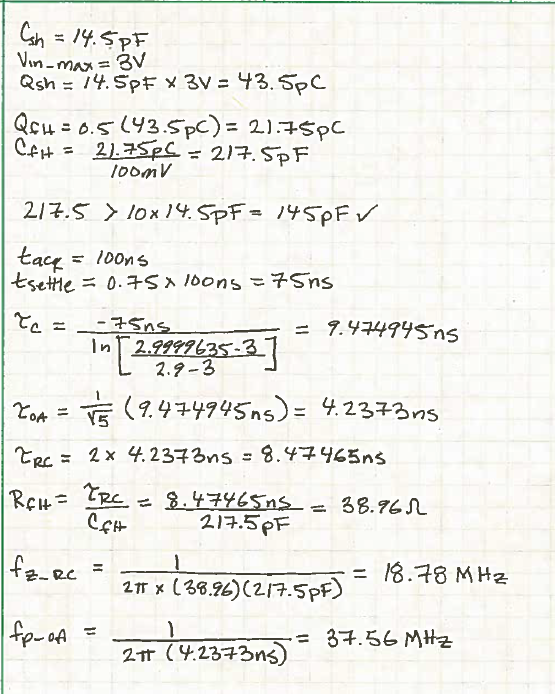 Csh = 14.5pF
Vin-max = 3V
Qsh = 14.5pF x 3V = 43.5pC
QfH = 0.5 (43.5pC) = 21.75pC
CfH = 21.75pC / 100mV = 217.5pF
217.5 > 10x14.5pF = 145pF ✓
tacq = 100ns
tsettle = 0.75 x 100ns = 75ns
τc = -75ns / ln[(2.9999635-3) / (2.9-3)] = 9.474945ns
τOA = 1/√5 (9.474945ns) = 4.2373ns
τRC = 2 x 4.2373ns = 8.47465ns
RfH = τRC / CfH = 8.47465ns / 217.5pF = 38.96Ω
fz_RC = 1 / 2π x (38.96)(217.5pF) = 18.78 MHz
fp-OA = 1 / 2π (4.2373ns) = 37.56 MHz